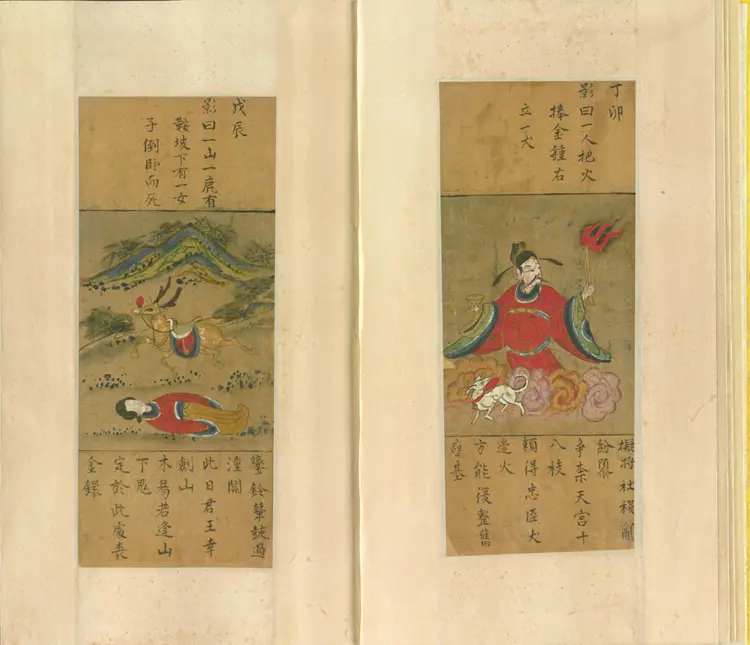 丁卯
影曰一人把火
捧金鐘右
立一犬
擬將社稷亂
紛
爭奈天宮十
八枝
賴得忠臣犬
造火
方能復整舊
基
戊辰
影曰一山一鹿有
鞍坡下有一女
子倒卧而死
鑾鈴聲過
潼關
此日君王幸
劍山
木易若逢山
下鬼
定於此處喪
金鐶